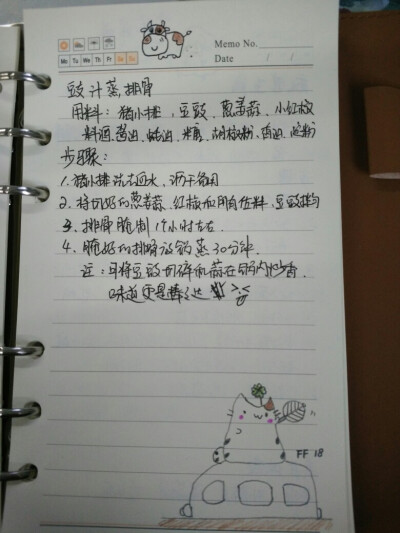 Memo No.
Mo Tu We Th Fr Sa Su
Date / /
豉汁蒸排骨
用料：猪小排，豆豉，葱姜蒜，小红椒
料酒，酱油，蚝油，糖，胡椒粉，香油，淀粉
步骤：
1. 猪小排洗去血水，沥干备用
2. 将切好的葱姜蒜，红椒和所有佐料，豆豉拌匀
3. 排骨腌制1个小时左右.
4. 腌好的排骨放锅蒸30分钟.
注：可将豆豉切碎和蒜在锅内炒香.
味道更是棒
FF 18